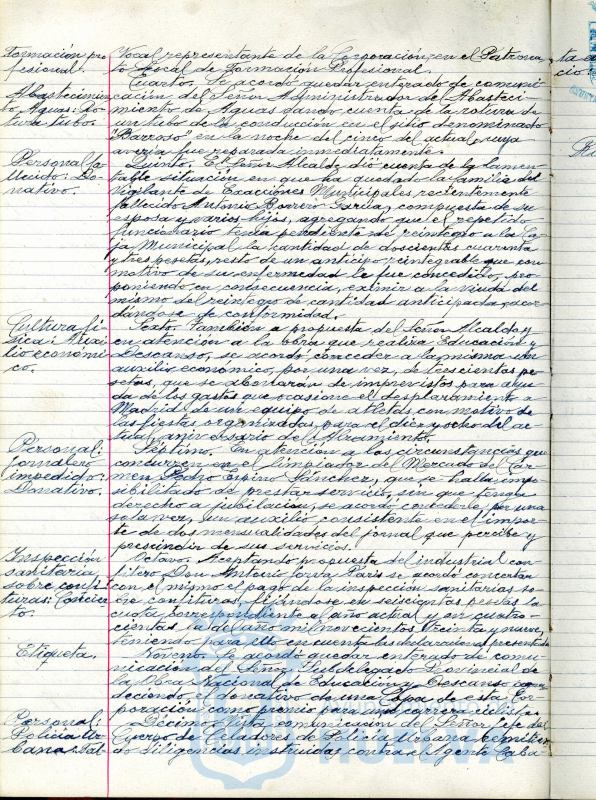 Formación pro
fesional.
Abastecimien
to Aguas: Ro-
tura tubo.
Personal fa
llecido: Do-
nativo.
Cultura fí-
sica: Auxi-
lio económi-
co.
Personal:
jornalero
impedido:
Donativo.
Inspección
sanitaria
sobre confi-
turas: Concier
to.
Etiqueta.
Personal:
Policía Ur-
bana:
Vocal representante de la Corporación en el Patrona-
to Local de Formación Profesional.
Cuarto. Se acordó quedar enterado de comuni-
cación del Señor Administrador de Abasteci-
miento de Aguas, dando cuenta de la rotura de
un tubo de la conducción en el sitio denominado
"Barroso" en la noche del cinco del actual, cuya
avería fue reparada inmediatamente.
Quinto. El Señor Alcalde dió cuenta de la lamen-
table situación en que ha quedado la familia del
Vigilante de Exacciones Municipales, recientemente
fallecido Antonio Borrero García, compuesta de su
esposa y varios hijos, agregando que el repetido
funcionario tenía pendiente de reintegro a la Ca-
ja Municipal la cantidad de doscientas cuarenta
y tres pesetas, resto de un anticipo reintegrable que con
motivo de su enfermedad le fue concedido, pro-
poniendo en consecuencia, eximir a la viuda del
mismo del reintegro de cantidad anticipada, acor-
dándose de conformidad.
Sexto. También a propuesta del Señor Alcalde y
en atención a la obra que realiza Educación y
Descanso, se acordó conceder a la misma un
auxilio económico, por una vez, de trescientas pe
setas, que se abonarán de imprevistos para ayu
da de los gastos que ocasione el desplazamiento a
Madrid de un equipo de atletas con motivo de
las fiestas organizadas para el diez y ocho del ac-
tual, aniversario del Alzamiento.
Séptimo. En atención a las circunstancias que
concurren en el limpiador del Mercado del Car-
men Pedro Espino Sánchez, que se halla impo-
sibilitado de prestar servicio, sin que tenga
derecho a jubilación, se acordó concederle, por una
sola vez, un auxilio consistente en el impor-
te de dos mensualidades del jornal que percibe y
prescindir de sus servicios.
Octavo. Aceptando propuesta del industrial con-
fitero Don Antonio Jorva París se acordó concertar
con el mismo el pago de la inspección sanitaria so-
bre confituras, fijándose en seiscientas pesetas la
cuota correspondiente al año actual y en cuatro-
cientas la del año mil novecientos treinta y nueve,
teniendo para ello en cuenta las declaraciones presentadas
Noveno. Se acordó quedar enterado de comu-
nicación del Señor Subdelegado Provincial de
la Obra Nacional de Educación y Descanso agra-
deciendo el donativo de una Copa de esta Cor-
poración como premio para una carrera ciclista.
Décimo. Vista comunicación del Señor Jefe del
Cuerpo de Celadores de Policía Urbana remitien-
do diligencias instruidas contra el Agente Caba
ta
cio